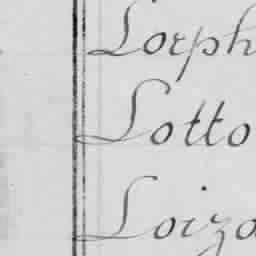 Lorph
Lotto
Loizo